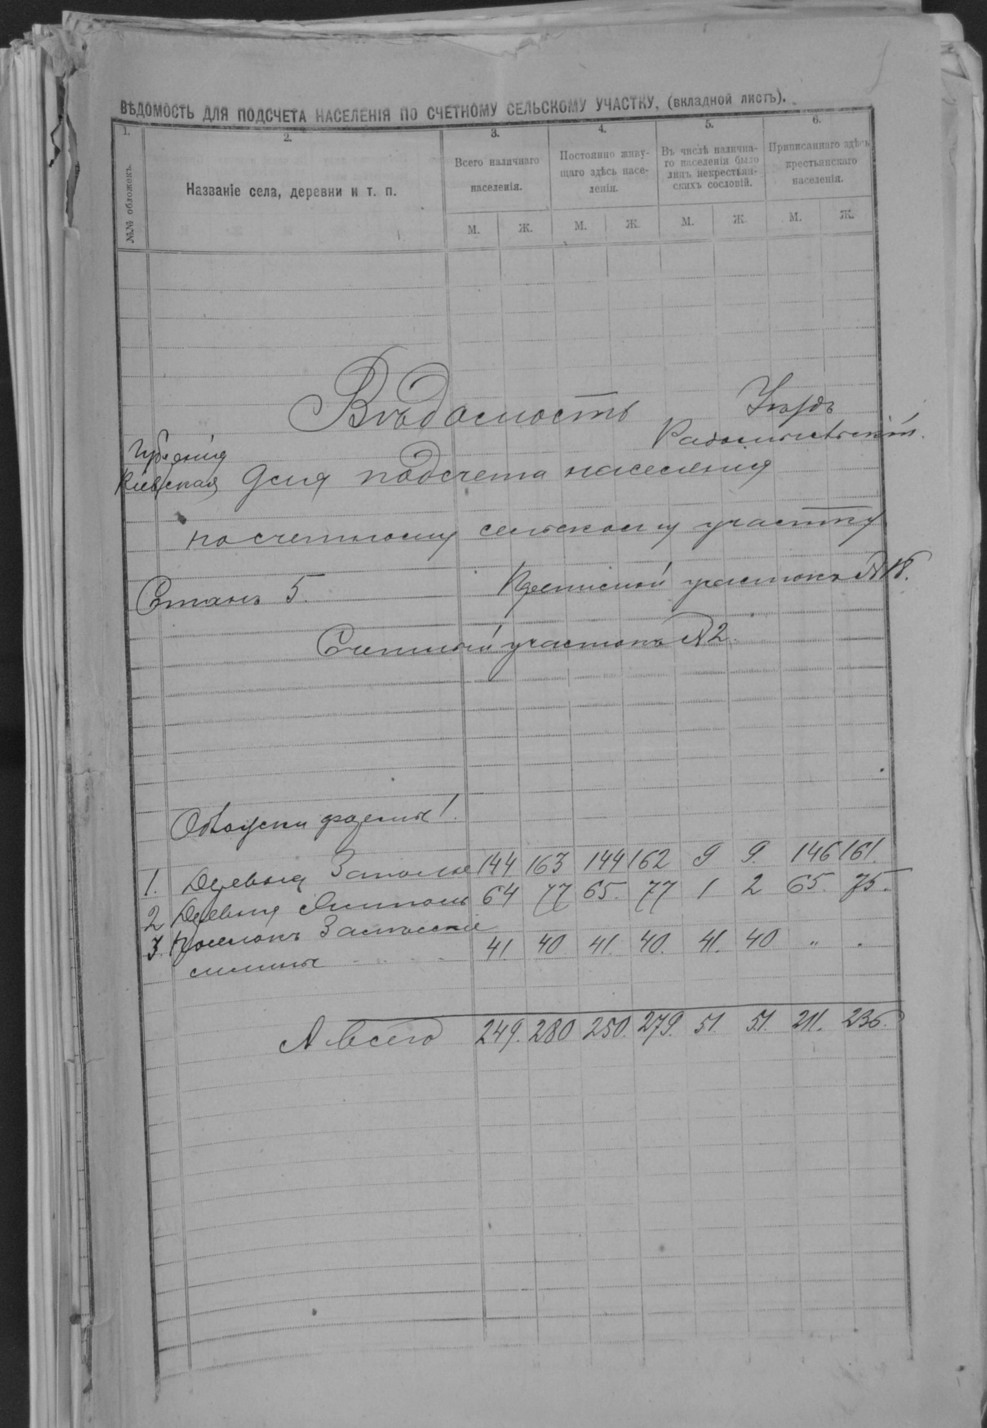 ВѢДОМОСТЬ ДЛЯ ПОДСЧЕТА НАСЕЛЕНІЯ ПО СЧЕТНОМУ СЕЛЬСКОМУ УЧАСТКУ. (вкладной листъ).
1. 2. 3. 4. 5. 6.
№№ обложекъ.
Названіе села, деревни и т. п.
Всего наличнаго
населенія.
Постоянно живу-
щаго здѣсь насе-
ленія.
Въ числѣ налична-
го населенія было
лицъ некрестьян-
скихъ сословій.
Приписаннаго здѣсь
крестьянскаго
населенія.
М. Ж. М. Ж. М. Ж. М. Ж.
Вѣдомость
Уѣздъ
Радомысльскій.
Губернія
Кіевская
для подсчета населенія
по счетному сельскому участку
Станъ 5. Переписной участокъ №18.
Счетный участокъ №2.
1. Деревня Заполье 144 163 144 162 9 9. 146 161.
2 Деревня 64 77 65. 77 1 2 65. 75.
3. Поселокъ
41. 40 41. 40. 41. 40 „ .
А всего 249. 280 250. 279. 51 51. 211. 236.